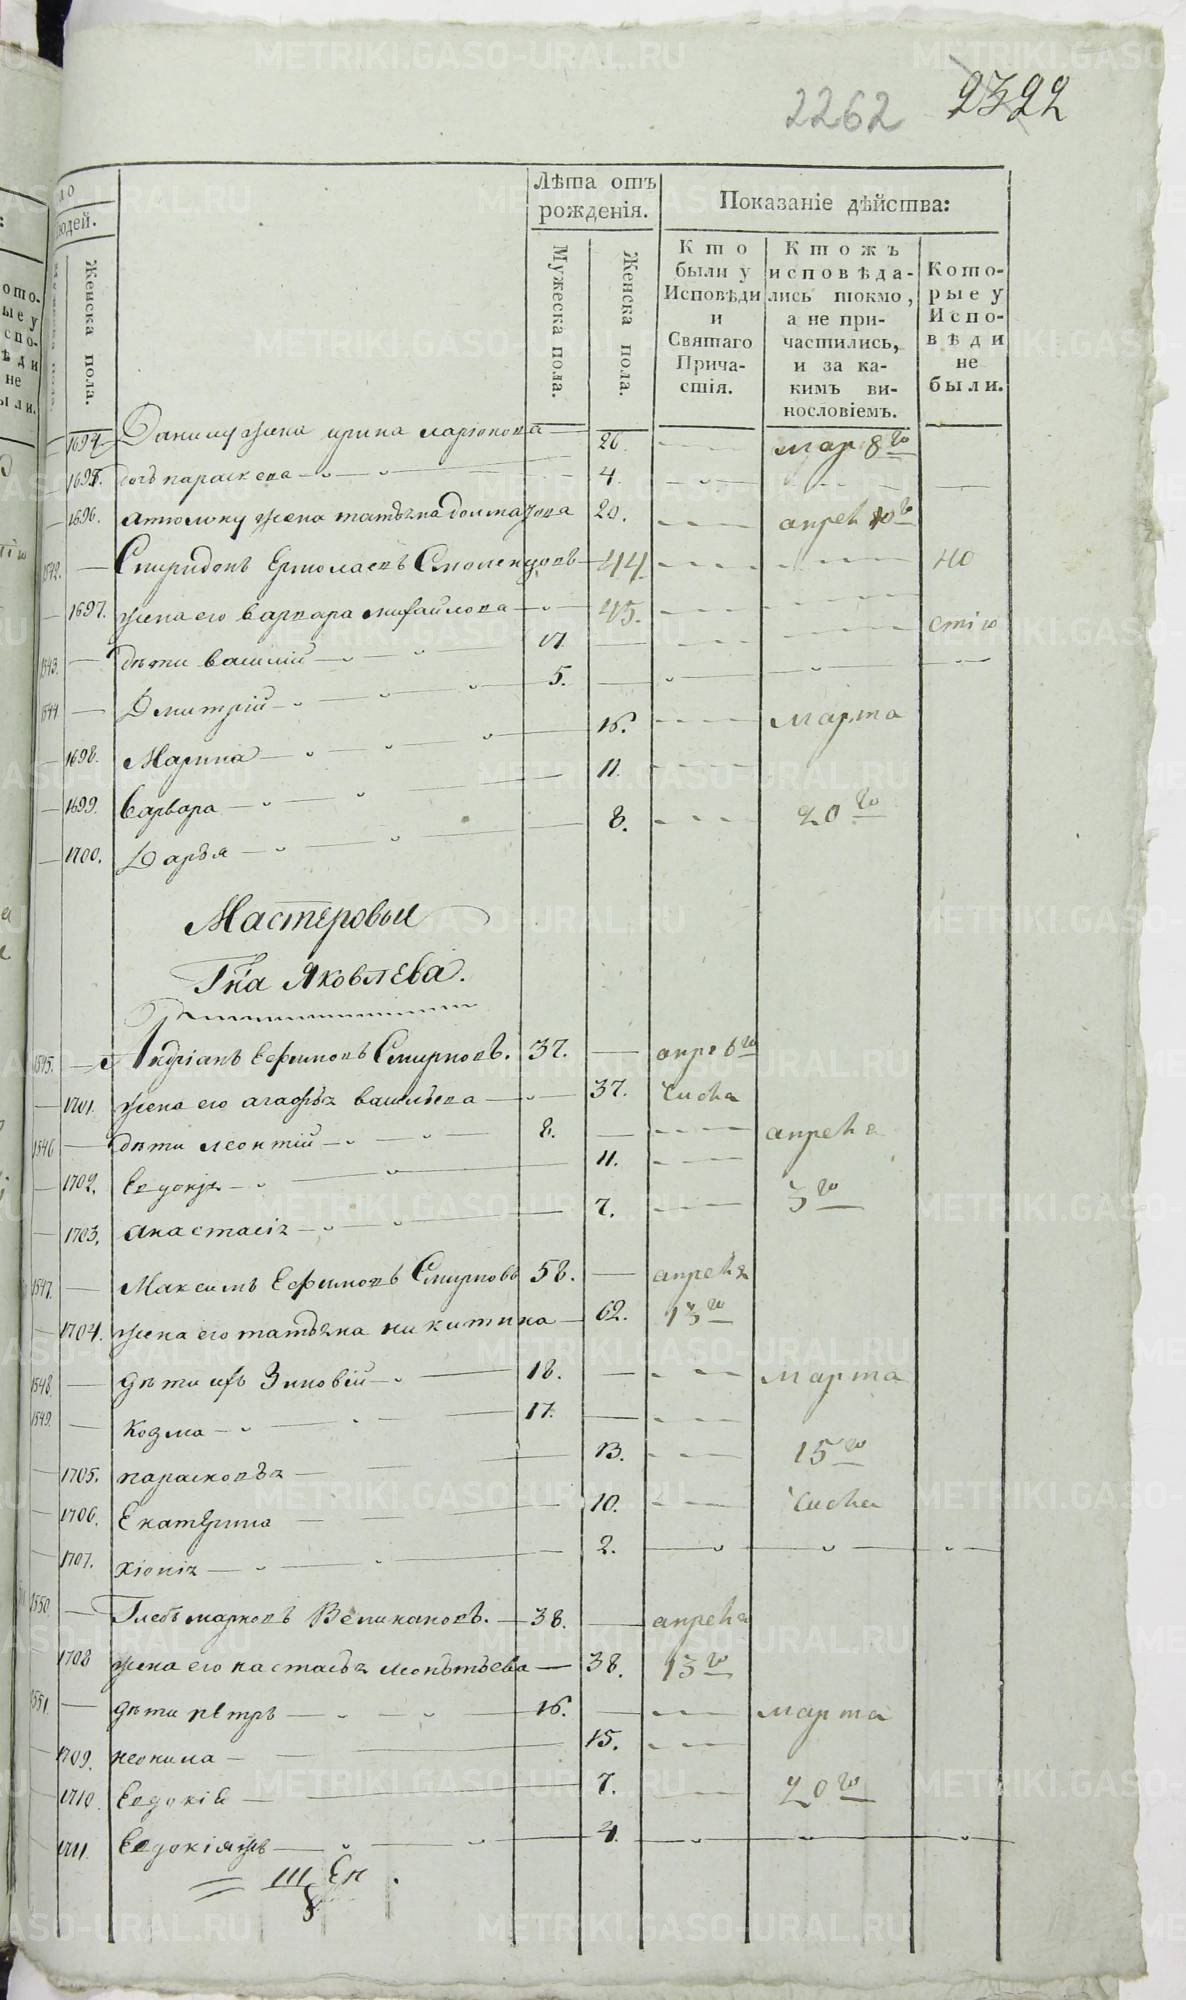 2262 2322
Лѣта отъ рожденія.
Показаніе дѣйства:
людей.
Женска пола.
Мужеска пола.
Женска пола.
Кто были у Исповѣди и Святаго Причастія.
Ктожъ исповѣдались токмо, а не причастились, и за какимъ винословіемъ.
Которые у Исповѣди не были.
1694. Данилу жена ирина ларіонова — 26. мар 8го
1695. дочь параскева — 4.
1696. жена татьяна 20. апреля
1542. Спиридонъ Ермолаевъ 44. но
1697. жена его варвара михайлова — 45. стію
1543. дѣти василий — 17.
1544. Дмитрій — 5.
1698. Марина — 16. марта
1699. Варвара — 11.
1700. Дарья — 8. 20го
Мастеровыи
Гна Яковлева.
1545. Андріанъ Ефимовъ Смирновъ. 37. — апре 6го
1701. жена его агафья васильева — 37. числа
1546 дѣти леонтій — 8. апреля
1702. Евдокія — 11.
1703. анастасія — 7. 3го
1547. Максимъ Ефимовъ Смирновъ 58. — апреля
1704. жена его татьяна никитина — 62. 13го
1548. дѣти ихъ Зиновій — 18. марта
1549. козма — 17.
1705. парасковья — 13. 15го
1706. Екатерина — 10. числа
1707. хіонія — 2.
1550 Глебъ марковъ Великановъ. — 38. апреля
1708 жена его настасья леонтьева — 38. 13го
1551. дѣти петръ — 16. марта
1709. неонила — 15.
1710. Евдокіѣ — 7. 20го
1711. Евдокія — 4.
METRIKI.GASO-URAL.RU